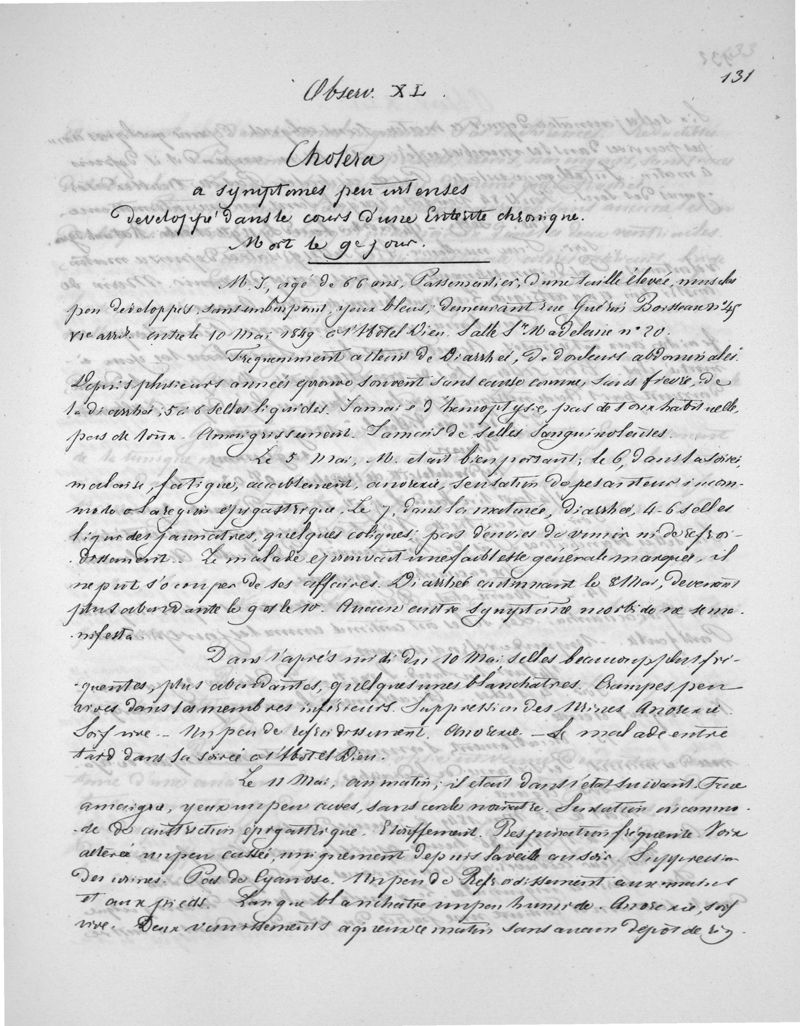 131
Observ. XL.
Cholera
a symptomes peu intenses
developpé dans le cours d'une Enterite chronique.
Mort le 9e jour.
M. J, agé de 66 ans, Passementier, d'une taille élevée, muscles
peu développés, sans embonpoint, yeux bleus; demeurant rue Guérin Boisseau n° 45
VIe arrdt. entre le 10 Mai 1849 a l'Hôtel Dieu. Salle Ste Madelaine n° 20.
Fréquemment atteint de Diarrhée, de douleurs abdominales.
Depuis plusieurs années eprouve souvent sans cause connue, sans fievre, de
la diarrhée; 5 à 6 selles liquides. Jamais d'hemoptysie, pas de toux habituelle,
pas de toux. Amaigrissement. Jamais de selles sanguinolentes.
Le 5 Mai, M. etait bien portant; le 6, dans la soirée,
malaise, fatigue, accablement, anorexie, sensation de pesanteur incom-
mode a la region epigastrique. Le 7, dans la matinée, diarrhée, 4-6 selles
liquides jaunatres, quelques coliques; pas d'envies de vomir ni de refroi-
dissement. Le malade eprouvait une faiblesse générale marquée, il
ne put s'occuper de ses affaires. Diarrhée continuant le 8 Mai, devenant
plus abondante le 9 et le 10. Aucun autre symptôme morbide ne se ma-
nifesta.
Dans l'après midi du 10 Mai selles beaucoup plus fré-
quentes, plus abondantes, quelques unes blanchatres. Crampes peu
vives dans les membres inférieurs. Suppression des urines. Anorexie.
Soif vive. - Un peu de refroidissement. Anorexie. - Le malade entre
tard dans la soirée a l'Hotel Dieu.
Le 11 Mai, au matin, il etait dans l'état suivant. Face
amaigrie, yeux un peu caves, sans cercle noiratre. Sensation incommo-
de de constriction epigastrique. Etouffement. Respiration fréquente. Voix
altérée un peu cassée, uniquement depuis la veille au soir. Suppression
des urines. Pas de Cyanose. Un peu de Refroidissement aux mains
et aux pieds. Langue blanchatre un peu humide. Anorexie, soif
vive. Deux vomissements aqueux ce matin sans aucun depot de riz.